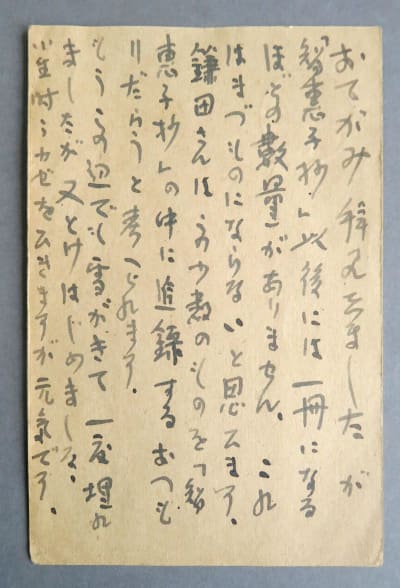 おてがみ拝見しましたが
「智恵子抄」以後には一冊になる
ほどの数量がありません、これ
はまづものにならないと思ひます、
鎌田さんはその少数のものを「智
恵子抄」の中に追録するおつも
りだらうと考へられます、
もうこの辺でも雪がきて一度埋れ
ましたが又とけはじめました、
小生時々カゼをひきますが元気です、